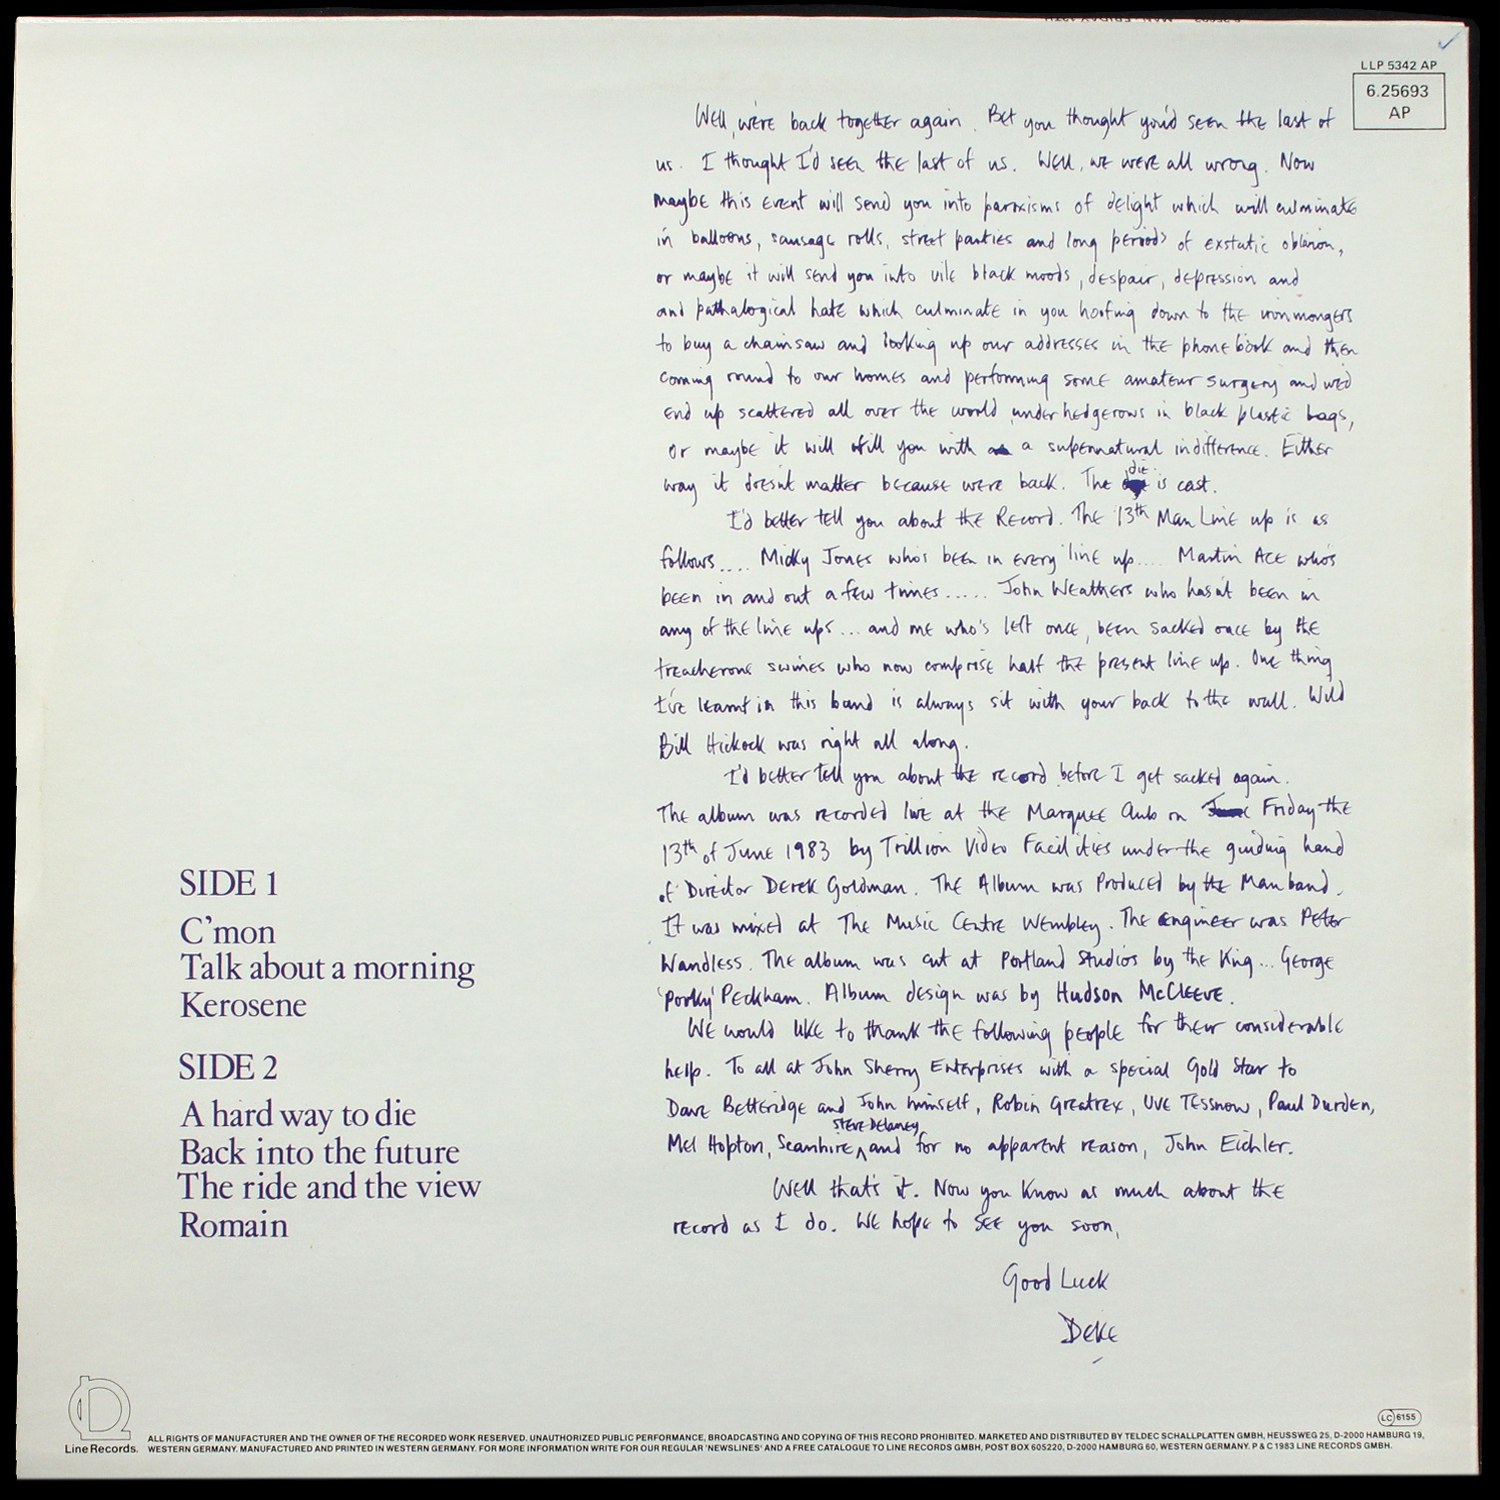 LLP 5342 AP
6.25693
AP
Well, we're back together again. Bet you thought you'd seen the last of
us. I thought I'd seen the last of us. Well, we were all wrong. Now
maybe this event will send you into paroxisms of delight which will culminate
in balloons, sausage rolls, street parties and long periods of exstatic oblivion,
or maybe it will send you into vile black moods, despair, depression and
and pathalogical hate which culminate in you hoofing down to the ironmongers
to buy a chainsaw and looking up our addresses in the phone book and then
coming round to our homes and performing some amateur surgery and we'd
end up scattered all over the world under hedgerows in black plastic bags,
or maybe it will fill you with a supernatural indifference. Either
way it doesn't matter because we're back. The die is cast.
I'd better tell you about the Record. The 13th Man Line up is as
follows.... Micky Jones who's been in every line up.... Martin Ace who's
been in and out a few times..... John Weathers who hasn't been in
any of the line ups... and me who's left once, been sacked once by the
treacherous swines who now comprise half the present line up. One thing
I've learnt in this band is always sit with your back to the wall. Wild
Bill Hickock was right all along.
I'd better tell you about the record before I get sacked again.
The album was recorded live at the Marquee Club on Friday the
13th of June 1983 by Trillion Video Facilities under the guiding hand
of Director Derek Goldman. The Album was Produced by the Man band.
It was mixed at The Music Centre Wembley. The engineer was Peter
Wandless. The album was cut at Portland Studios by the King... George
'Porky' Peckham. Album design was by Hudson McCleeve.
We would like to thank the following people for their considerable
help. To all at John Sherry Enterprises with a special Gold Star to
Dave Betteridge and John himself, Robin Greatrex, Uve Tessnow, Paul Durden,
Steve Delaney
Mel Hopton, Seanhire, and for no apparent reason, John Eichler.
Well that's it. Now you know as much about the
record as I do. We hope to see you soon,
Good Luck
Deke
SIDE 1
C'mon
Talk about a morning
Kerosene
SIDE 2
A hard way to die
Back into the future
The ride and the view
Romain
Line Records.
LC 6155
ALL RIGHTS OF MANUFACTURER AND THE OWNER OF THE RECORDED WORK RESERVED. UNAUTHORIZED PUBLIC PERFORMANCE, BROADCASTING AND COPYING OF THIS RECORD PROHIBITED. MARKETED AND DISTRIBUTED BY TELDEC SCHALLPLATTEN GMBH, HEUSSWEG 25, D-2000 HAMBURG 19,
WESTERN GERMANY. MANUFACTURED AND PRINTED IN WESTERN GERMANY. FOR MORE INFORMATION WRITE FOR OUR REGULAR 'NEWSLINES' AND A FREE CATALOGUE TO LINE RECORDS GMBH, POST BOX 605220, D-2000 HAMBURG 60, WESTERN GERMANY. P & C 1983 LINE RECORDS GMBH.